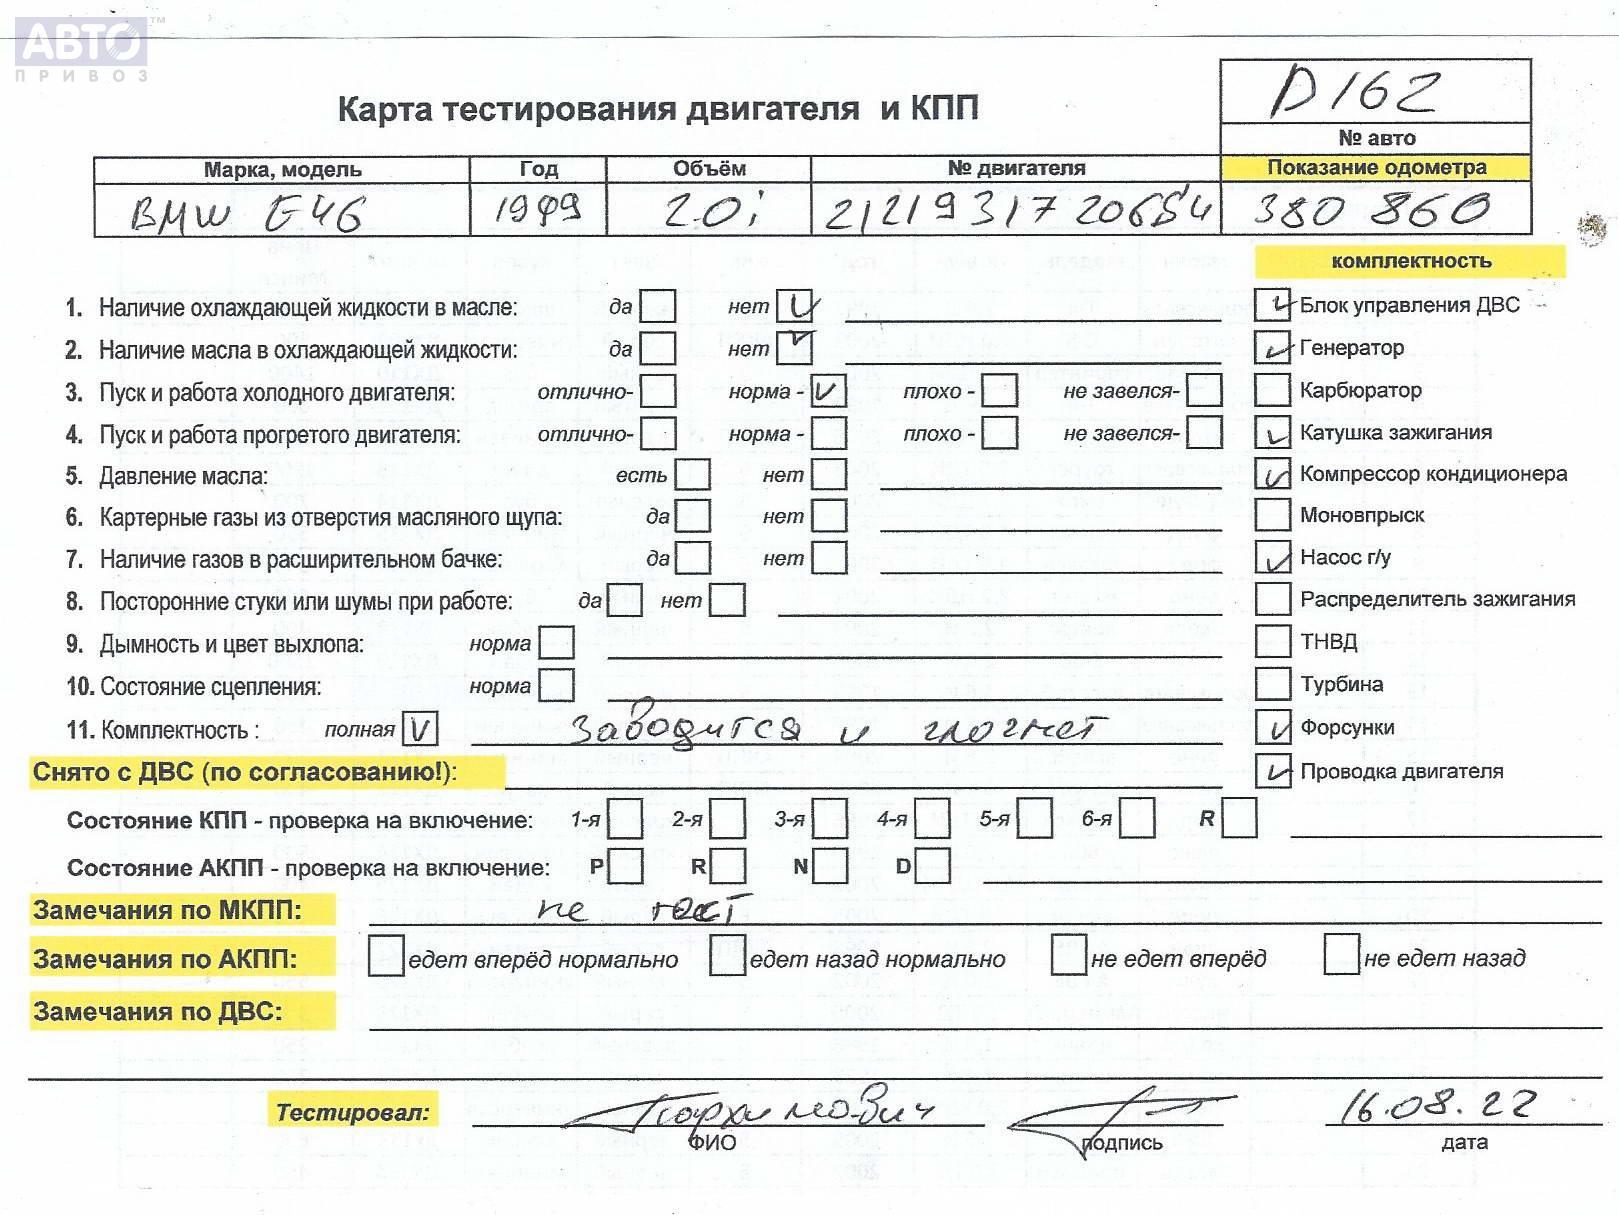 АВТО™
ПРИВОЗ
D162
Карта тестирования двигателя и КПП
№ авто
Марка, модель Год Объём № двигателя Показание одометра
BMW E46 1999 2.0i 380 860
комплектность
1. Наличие охлаждающей жидкости в масле: да нет V V Блок управления ДВС
2. Наличие масла в охлаждающей жидкости: да нет V V Генератор
3. Пуск и работа холодного двигателя: отлично- норма - V плохо - не завелся- Карбюратор
4. Пуск и работа прогретого двигателя: отлично- норма - плохо - не завелся- V Катушка зажигания
5. Давление масла: есть нет V Компрессор кондиционера
6. Картерные газы из отверстия масляного щупа: да нет Моновпрыск
7. Наличие газов в расширительном бачке: да нет V Насос г/у
8. Посторонние стуки или шумы при работе: да нет Распределитель зажигания
9. Дымность и цвет выхлопа: норма ТНВД
10. Состояние сцепления: норма Турбина
11. Комплектность : полная V Заводится и глохнет V Форсунки
Снято с ДВС (по согласованию!): V Проводка двигателя
Состояние КПП - проверка на включение: 1-я 2-я 3-я 4-я 5-я 6-я R
Состояние АКПП - проверка на включение: P R N D
Замечания по МКПП: не тест
Замечания по АКПП: едет вперёд нормально едет назад нормально не едет вперёд не едет назад
Замечания по ДВС:
Тестировал: Пархимович 16.08.22
ФИО подпись дата